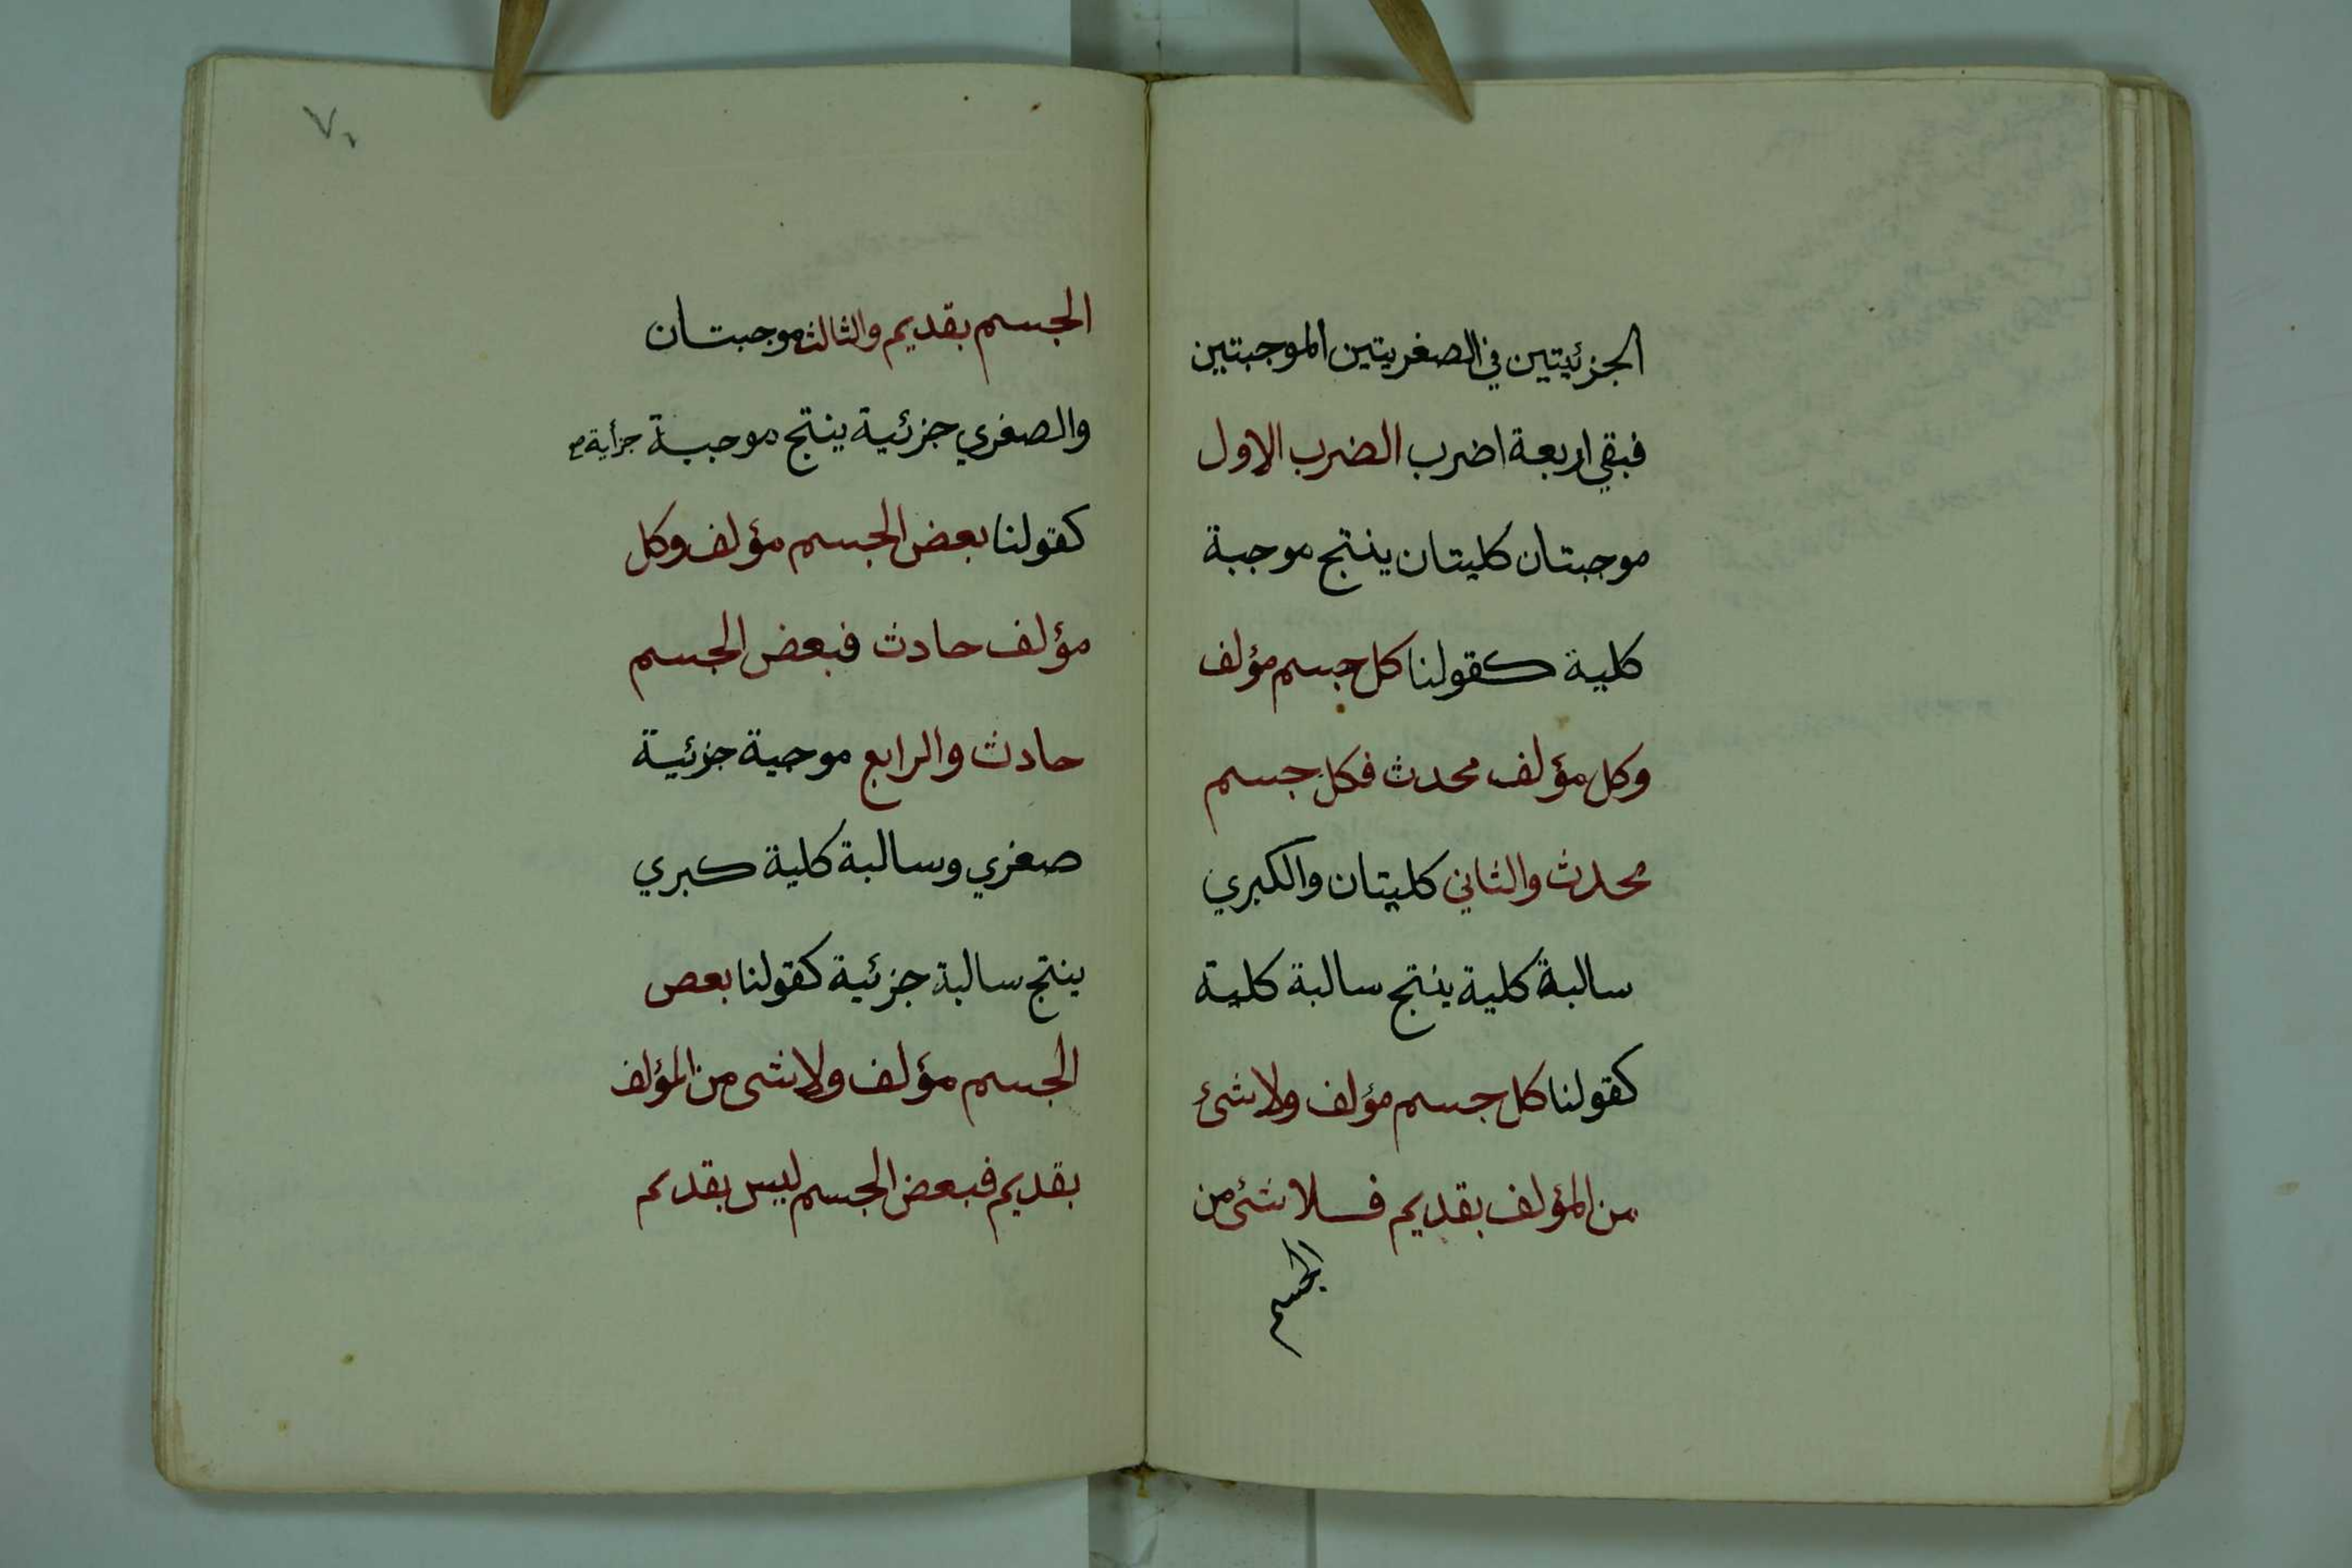 الجزئيتين في الصغريتين الموجبتين
فبقي اربعة اضرب الضرب الاول
موجبتان كليتان ينتج موجبة
كلية كقولنا كل جسم مؤلف
وكل مؤلف محدث فكل جسم
محدث والثاني كليتان والكبري
سالبة كلية ينتج سالبة كلية
كقولنا كل جسم مؤلف ولا شئ
من المؤلف بقديم فلا شئ من
الجسم
٧٠
الجسم بقديم والثالث موجبتان
والصغري جزئية ينتج موجبة جزأية
كقولنا بعض الجسم مؤلف وكل
مؤلف حادث فبعض الجسم
حادث والرابع موجبة جزئية
صغري وسالبة كلية كبري
ينتج سالبة جزئية كقولنا بعص
الجسم مؤلف ولا شى من المؤلف
بقديم فبعض الجسم ليس بقديم